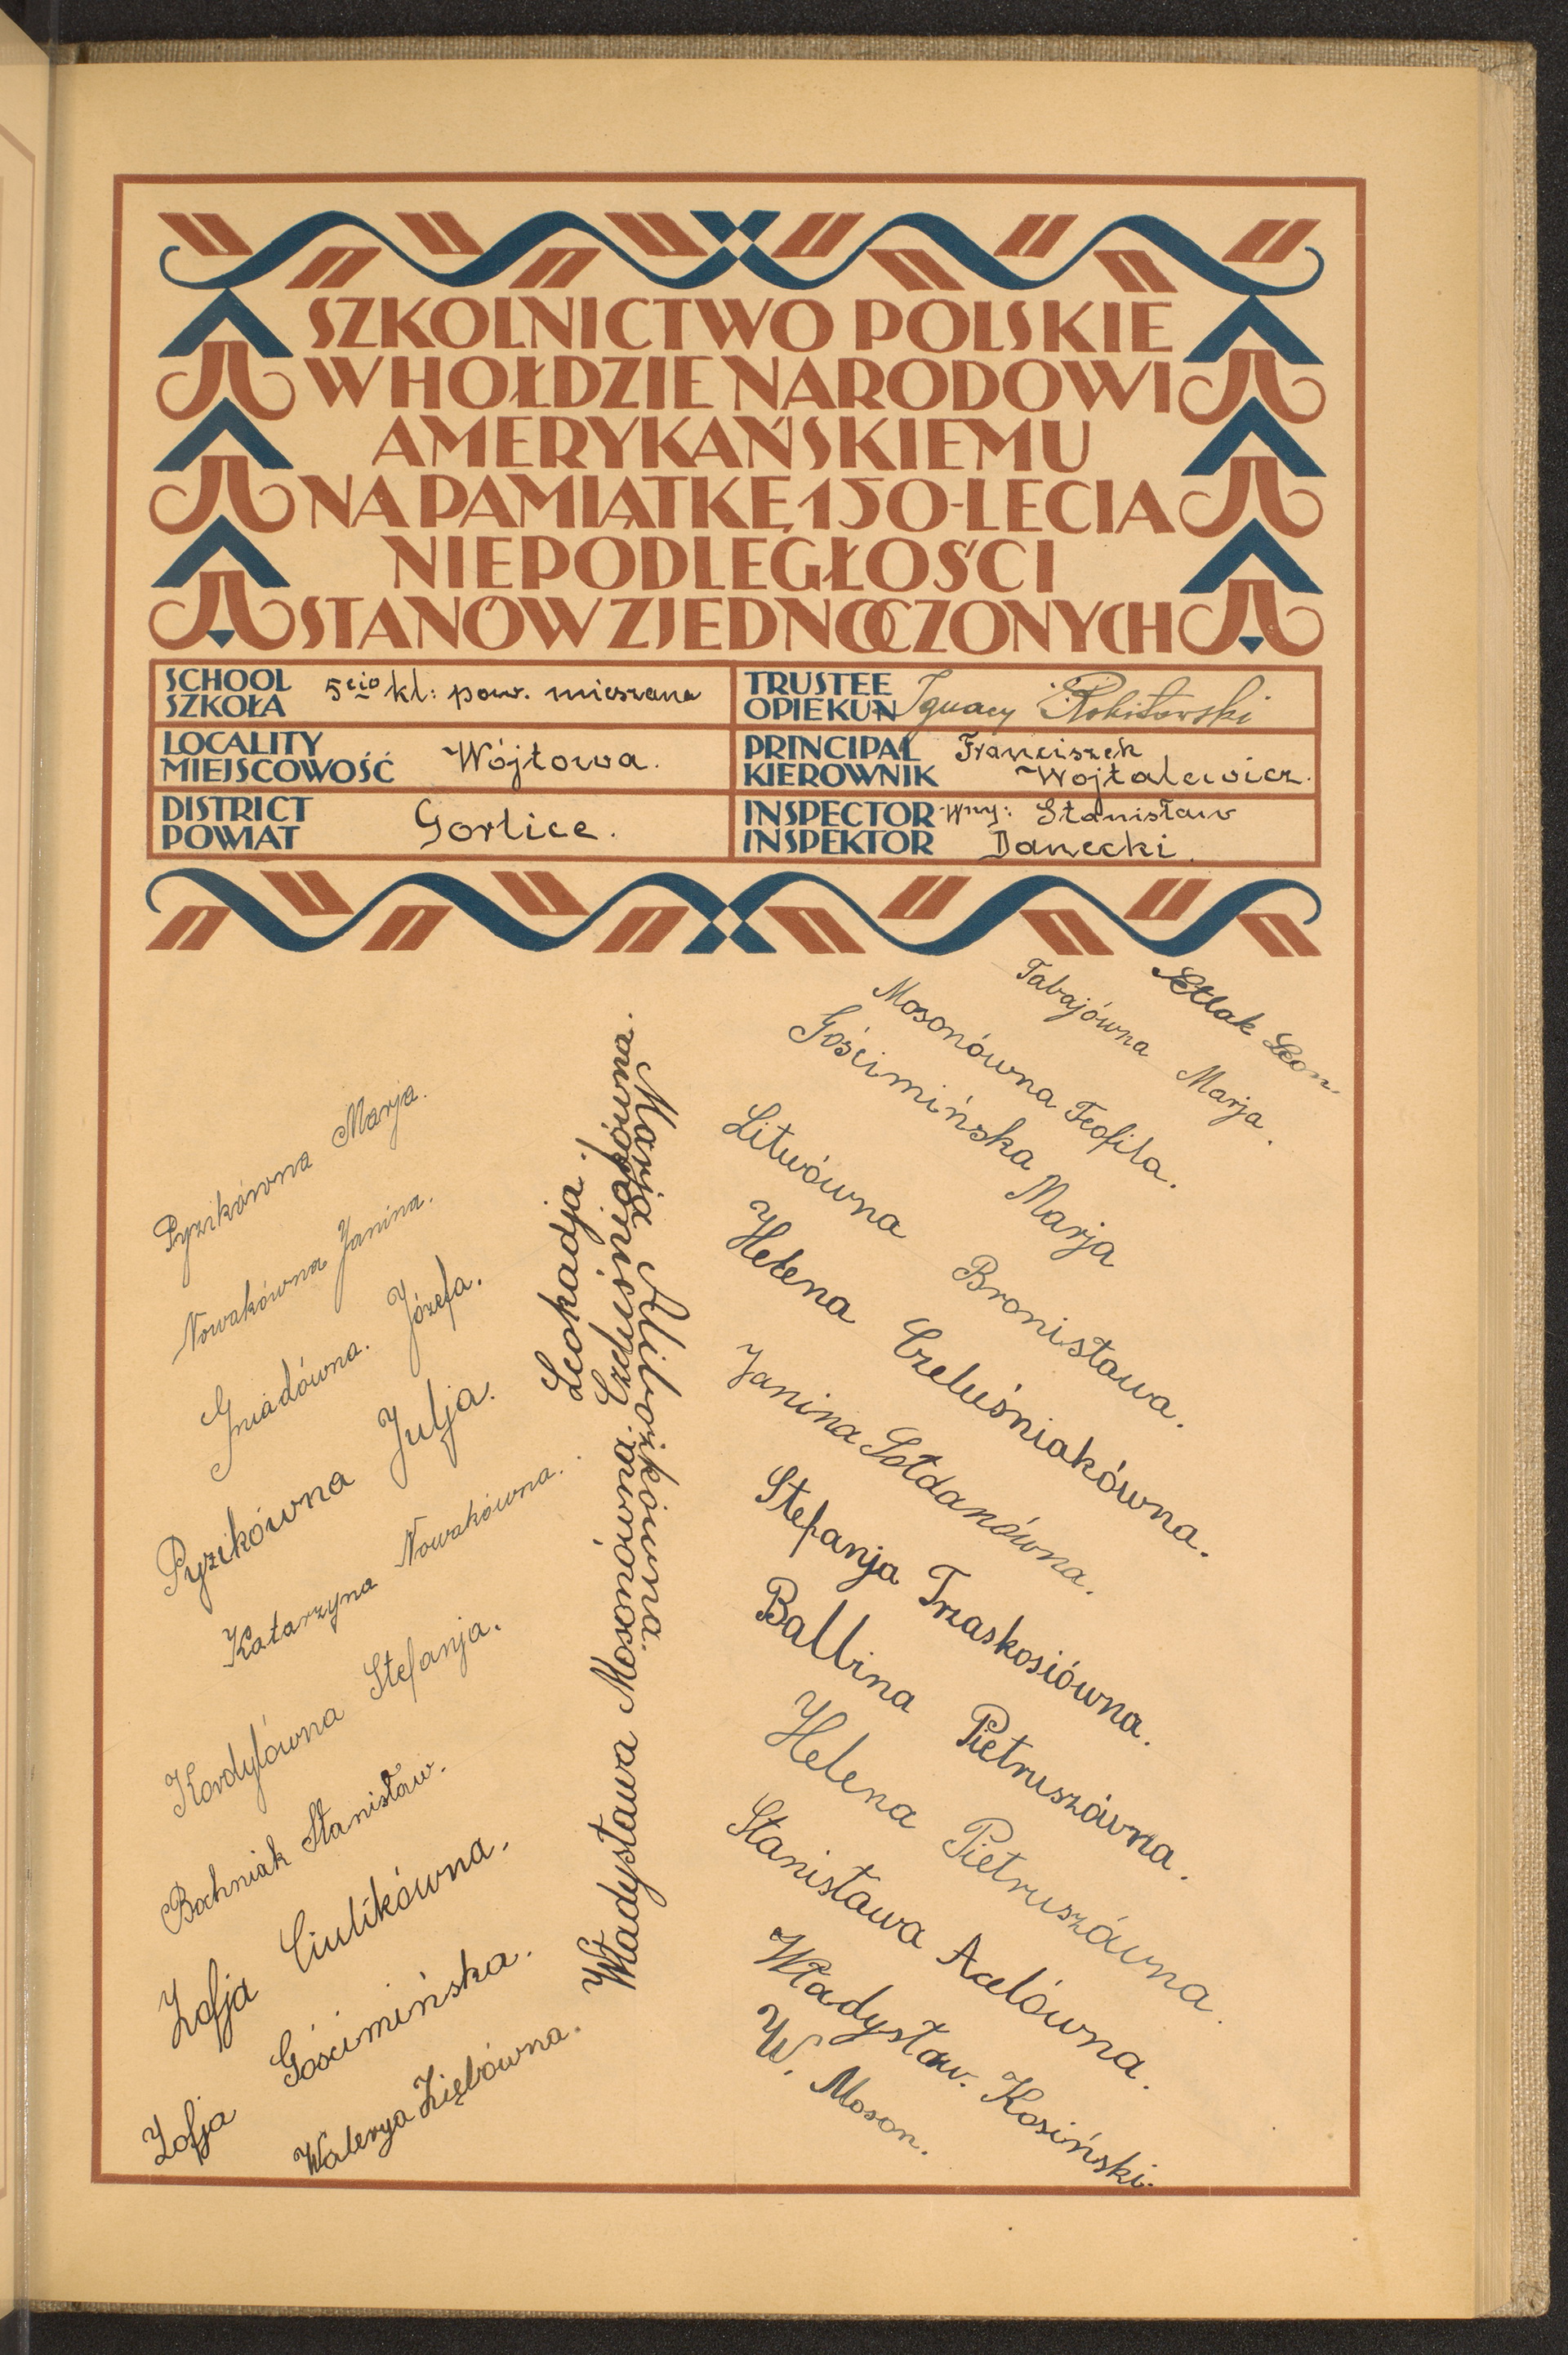 SZKOLNICTWO POLSKIE
W HOŁDZIE NARODOWI
AMERYKAŃSKIEMU
NA PAMIĄTKĘ 150-LECIA
NIEPODLEGŁOŚCI
STANÓW ZJEDNOCZONYCH
SCHOOL
SZKOŁA
5cio kl: pow. mieszana
TRUSTEE
OPIEKUN
Ignacy
LOCALITY
MIEJSCOWOŚĆ
Wójtowa.
PRINCIPAL
KIEROWNIK
Franciszek
Wojtalewicz.
DISTRICT
POWIAT
Gorlice.
INSPECTOR
INSPEKTOR
Wny: Stanisław
Danecki.
Pyzikówna Marja.
Nowakówna Janina.
Gniadówna. Józefa.
Pyzikówna Julja.
Katarzyna Nowakówna.
Kordylówna Stefanja.
Bochniak Stanisław.
Zofja Ciulikówna.
Zofja Gościmińska.
Walerya Ziębówna.
Leokadja.
Czeluśniakówna.
Władysława Mosonówna.
Marja
Setlak Leon.
Tabajówna Marja.
Mosonówna Teofila.
Gościmińska Marja
Litwówna Bronisława.
Helena Czeluśniakówna.
Janina Sołdanówna.
Stefanja Trzaskosiówna.
Balbina Pietruszówna.
Helena Pietruszówna.
Stanisława Acelówna.
Władysław. Kosiński.
W. Moson.